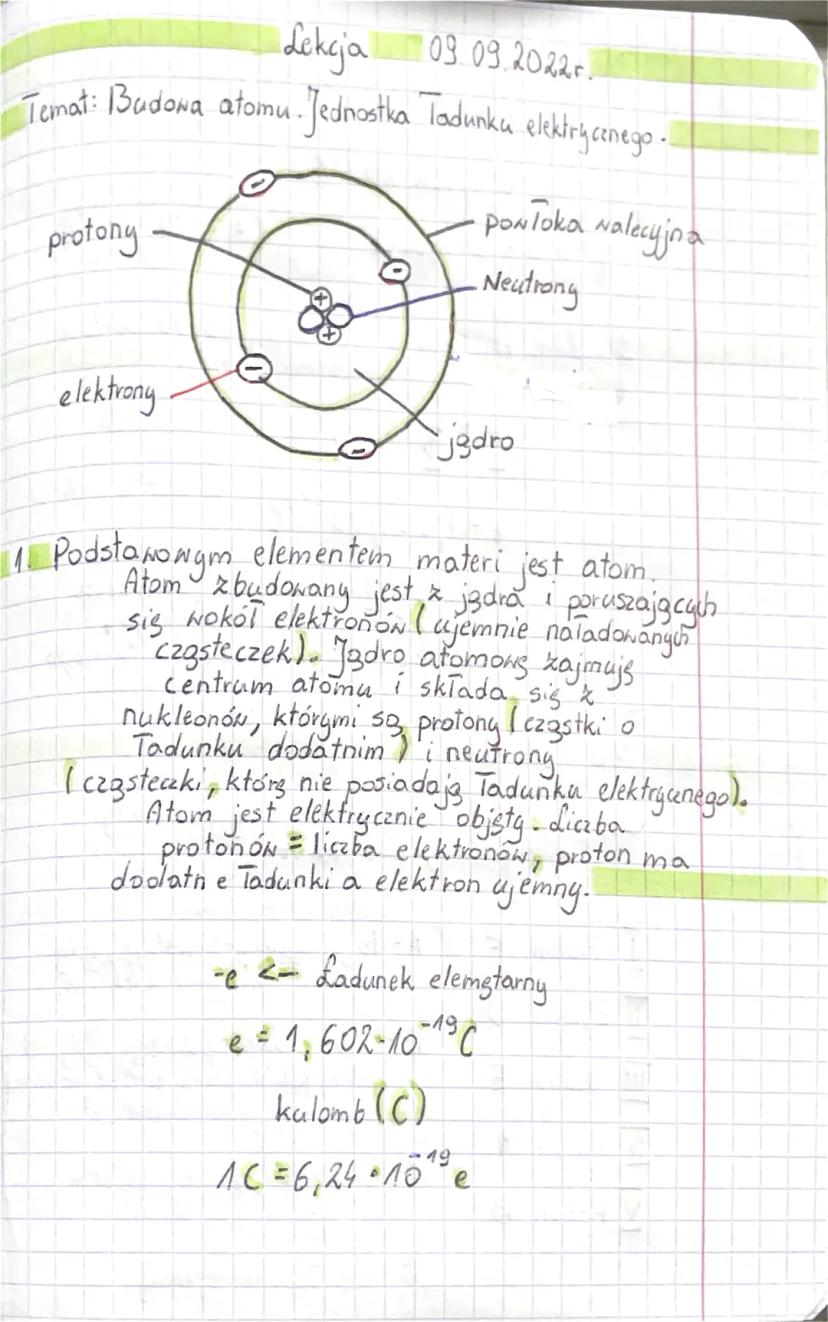 Lekcja 09.09.2022r.
Temat: Budowa atomu. Jednostka Ładunku elektrycznego.
protony
powłoka walecyjna
Neutrony
elektrony
jądro
1. Podstawowym elementem materi jest atom.
Atom zbudowany jest z jądra i poruszających
się wokół elektronów (ujemnie naładowanych
cząsteczek). Jądro atomowę zajmuję
centrum atomu i składa się z
nukleonów, którymi są protony (cząstki o
Ładunku dodatnim) i neutrony
(cząsteczki, którę nie posiadają Ładunku elektrycznego).
Atom jest elektrycznie objęty. Liczba
protonów = liczba elektronów, proton ma
dodatn e Ładunki a elektron ujemny.
-e <- Ładunek elemętarny
e = 1,602·10⁻¹⁹C
kulomb (C)
1C = 6,24·10⁻¹⁹e